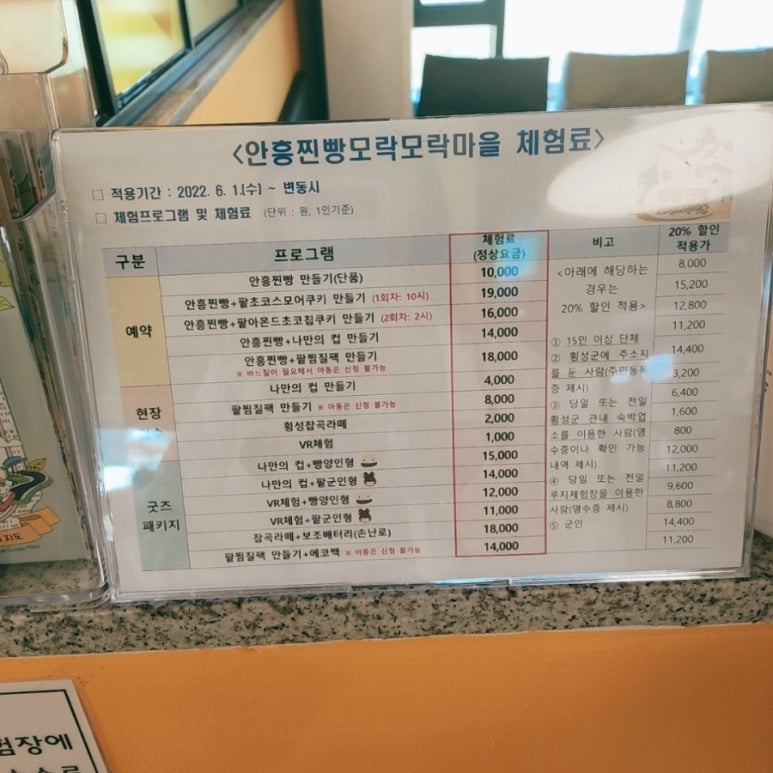 <안흥찐빵모락모락마을 체험료>
□ 적용기간 : 2022. 6. 1.(수) ~ 변동시
□ 체험프로그램 및 체험료 (단위 : 원, 1인기준)
구분 프로그램 체험료 (정상요금) 비고 20% 할인 적용가
예약
안흥찐빵 만들기(단품) 10,000 8,000
안흥찐빵+팥초코스모어쿠키 만들기 (1회차: 10시) 19,000 15,200
안흥찐빵+팥아몬드초코칩쿠키 만들기 (2회차: 2시) 16,000 12,800
안흥찐빵+나만의 컵 만들기 14,000 11,200
안흥찐빵+팥찜질팩 만들기 18,000 14,400
※ 바느질이 필요해서 아동은 신청 불가능
현장
나만의 컵 만들기 4,000 3,200
팥찜질팩 만들기 ※ 아동은 신청 불가능 8,000 6,400
횡성잡곡라떼 2,000 1,600
VR체험 1,000 800
굿즈
패키지
나만의 컵+빵양인형 15,000 12,000
나만의 컵+팥군인형 14,000 11,200
VR체험+빵양인형 12,000 9,600
VR체험+팥군인형 11,000 8,800
잡곡라떼+보조배터리(손난로) 18,000 14,400
팥찜질팩 만들기+에코백 ※ 아동은 신청 불가능 14,000 11,200
<아래에 해당하는
경우는
20% 할인 적용>
① 15인 이상 단체
② 횡성군에 주소지
를 둔 사람(주민등록
증 제시)
③ 당일 또는 전일
횡성군 관내 숙박업
소를 이용한 사람(영
수증이나 확인 가능
내역 제시)
④ 당일 또는 전일
루지체험장을 이용한
사람(영수증 제시)
⑤ 군인
지도
험장에